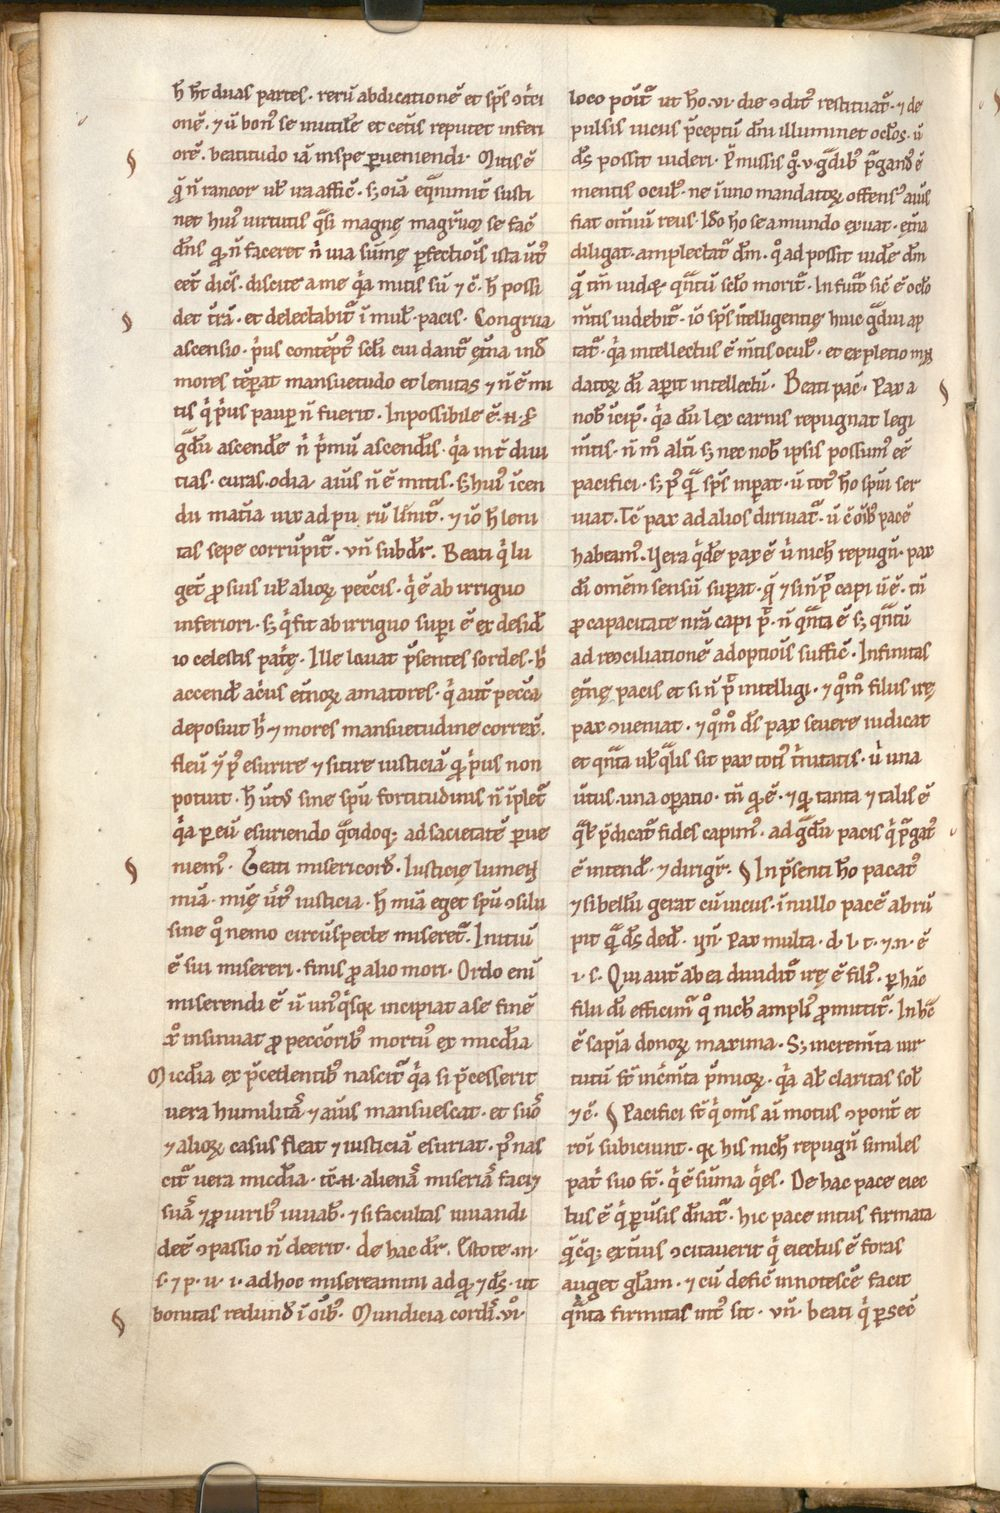 h̄ ht̄ duas partes. rerū abdicationē et sp̄s ꝯt͛ci
onē. ⁊ ū bon᷒ se inutilē et cet͛is reputet inferi
orē. beatitudo iā inspe ꝑueniendi. Mitis ē
qͥ n̄ rancor ul᷒ ira affic̄. sꝫ oīa eq̄nimit̄ susti
net hui᷒ uirtutis q̄si magnę magr̄m se fac̄
dn̄s qͥ n̄ faceret n̄ uia sūmę ꝑfectiōis ista ūt᷒
eēt dic̄s. discite a me q͛a mitis sū ⁊ c̄. h̄ possi
det t͛rā. et delectabit᷒ ī mul᷒. pacis. Congrua
ascensio. p͛us contēpt᷒ scl̄i cui dant᷒ et͛na inde
mores tēꝑat mansuetudo et lenitas ⁊ n̄ ē mi
tis qͥ p͛us pauꝑ n̄ fuerit. Inpossibile ē. n̄.
gͣdū ascendēe n̄ p͛mū ascend͛is. q͛a int̄ diui
tias. curas. odia. aīus n̄ ē mitis. sꝫ hui᷒ īcen
dii mat͛ia uix ad pu rū līnit᷒. ⁊ iō h̄ leni
tas sepe corrūpit᷒. un̄ subdr̄. Beati qͥ lu
get̄ ꝓ suis ul᷒ alioꝝ pecc̄is. qͥ ē ab irriguo
inferiori. sꝫ qͥ fit ab irriguo suꝑi ē ex desid͛
io celestis pat͛ę. Ille lauat p͛sentes sordes. h̄
accend͛ ac͛ius et͛noꝝ amatores. qͥ aut̄ pecca
deposuit h̄ ⁊ mores mansuetudine correx͛.
fleū ⁊ p᷒ esurire ⁊ sitire iusticiā qͥ p͛us non
potuit. h̄ ūt᷒ sine sp̄u fortitudinis n̄ īplet᷒
q͛a ꝑ eū esuriendo q̄cidoqꝫ ad sacietatē ꝑue
niem᷒. Beati misericord᷒. Iusticię lumen
mīa. mīę ūt᷒ iusticia. h̄ mīa eget sp̄u ꝯsilii
sine q̊ nemo circūspecte miseret᷒. Initiū
ē sui misereri. finis ꝓ alio mori. Ordo enī
miserendi ē ū un᷒qͥsqꝫ incipiat a se finē
x̄ insinuat ꝓ peccōrib᷒ mortū ex micd̄ia
Micd̄ia ex p͛cedentib᷒ nascit᷒ q͛a si p͛cesserit
uera humilitā ⁊ aīus mansuescat. et suō
⁊ alioꝝ casus fleat ⁊ iusticiā esuriat. p᷒ nas
cit᷒ uera micd̄ia. tc̄. n̄. alienā miseriā facit
suā ⁊ ꝓ uirib᷒ iuuab᷒. ⁊ si facultas iuuandi
deē ꝯpassio n̄ deerit. de hac dr̄. Estote. m.
s. ⁊ p. u. i. ad hoc misereamini ad qͥ ⁊ ds̄. ut
bonitas redund᷒ ī oīb᷒. Mundicia cordis. ui.
loco poīt᷒ ut hō. ui. die ꝯdit᷒ restituat᷒. ⁊ de
pulsis uiciis p͛ceptū dn̄i illuminet oc̄los. ū
ds̄ possit uideri. P͛missis q̊. v. gͣdib᷒ p͛gand᷒ ē
mentis ocul᷒. ne ī uno mandatoꝝ offens᷒ aīus
fiat om̄iū reus. Iđo hō se a mundo exuat. et͛na
diligat. amplectat᷒ dm̄. q̊ ad possit uidē. dm̄
qͥ tm̄ uidet᷒. qn̄tū sc̄lo morit᷒. In fut᷒ sic̄ ē oc̄lo
mt̄is uidebit᷒. iō sp̄s ītelligentię huic gͣdui ap
tat᷒. q͛a intellectus ē mt̄is ocul᷒. et expletio man
datoꝝ dī aꝑit intellectū. Beati pac̄. Pax a
nob᷒ īcip᷒. q͛a dū lex carnis repugnat legi
mt̄is. n̄ m̊ alt͛i sꝫ nec nob᷒ ipsis possum᷒ eē
pacifici. sꝫ p᷒ qͣ sp̄s inꝑat. ū tot᷒ hō sp̄ui ser
uiat. Tc̄ pax ad alios diriuat᷒. ū c̄ oīb᷒ pacē
habeam᷒. Uera qͥdē pax ē ū nich᷒ repugn̄. pax
dī omēm sensū suꝑat. q̄ ⁊ si n̄ p͛ capi ū ē. tn̄
ꝓ capacitate nr̄a capi p᷒. n̄ qn̄ta ē sꝫ qn̄tū
ad recōciliationē adoptiōis suffic̄. Infinitas
et͛nę pacis et si n̄ p᷒ intelligi. ⁊ q̊m̊ filius irę
pax ꝯueniat. ⁊ q̊m̊ ds̄ pax seuere iudicat
et qn̄ta ul᷒ q̄lis sit pax toti᷒ t͛nitatis. ū una
ūtus. una oꝑatio. tn̄ qͥ ē. ⁊ qͥ tanta ⁊ talis ē
q̄l᷒ p͛dicat᷒ fides capim᷒. ad gͣdū pacis qͥ p͛gat᷒
ē intend᷒. ⁊ dirigr̄. In p͛senti hō pacat᷒
⁊ si bellū gerat cū uiciis. ī nullo pacē abrū
pit qͣ ds̄ ded᷒. un̄. Pax multa. d. l. t. ⁊. n. ē
i. s. Qui aut̄ ab ea diuidit᷒ irę ē fili᷒. ꝑ hāc
filii dī efficim᷒ q̊ nich᷒ ampli᷒ ꝓmittit᷒. In hc̄
ē sapīa donoꝝ maxima. Sꝫ incrementa uir
tutū st̄ inc͛mta p͛mioꝝ. q͛a al᷒ claritas sol᷒
⁊ c̄. Pacifici st̄ qͥ om̄s aī motus ꝯponūt et
rōi subiciunt. qꝫ his nich᷒ repugn̄ similes
pat͛ suo st̄. qͥ ē sūma q͛es. De hac pace eiec
tus ē qͥ ꝑuersis dn̄at᷒. hic pace intus firmata
q̄cqꝫ ext͛ius ꝯcitauerit qͥ eiectus ē foras
auget gl̄am. ⁊ cū defic̄ innotescē facit
qn̄ta firmitas int᷒ sit. un̄. beati qͥ ꝑsec̄